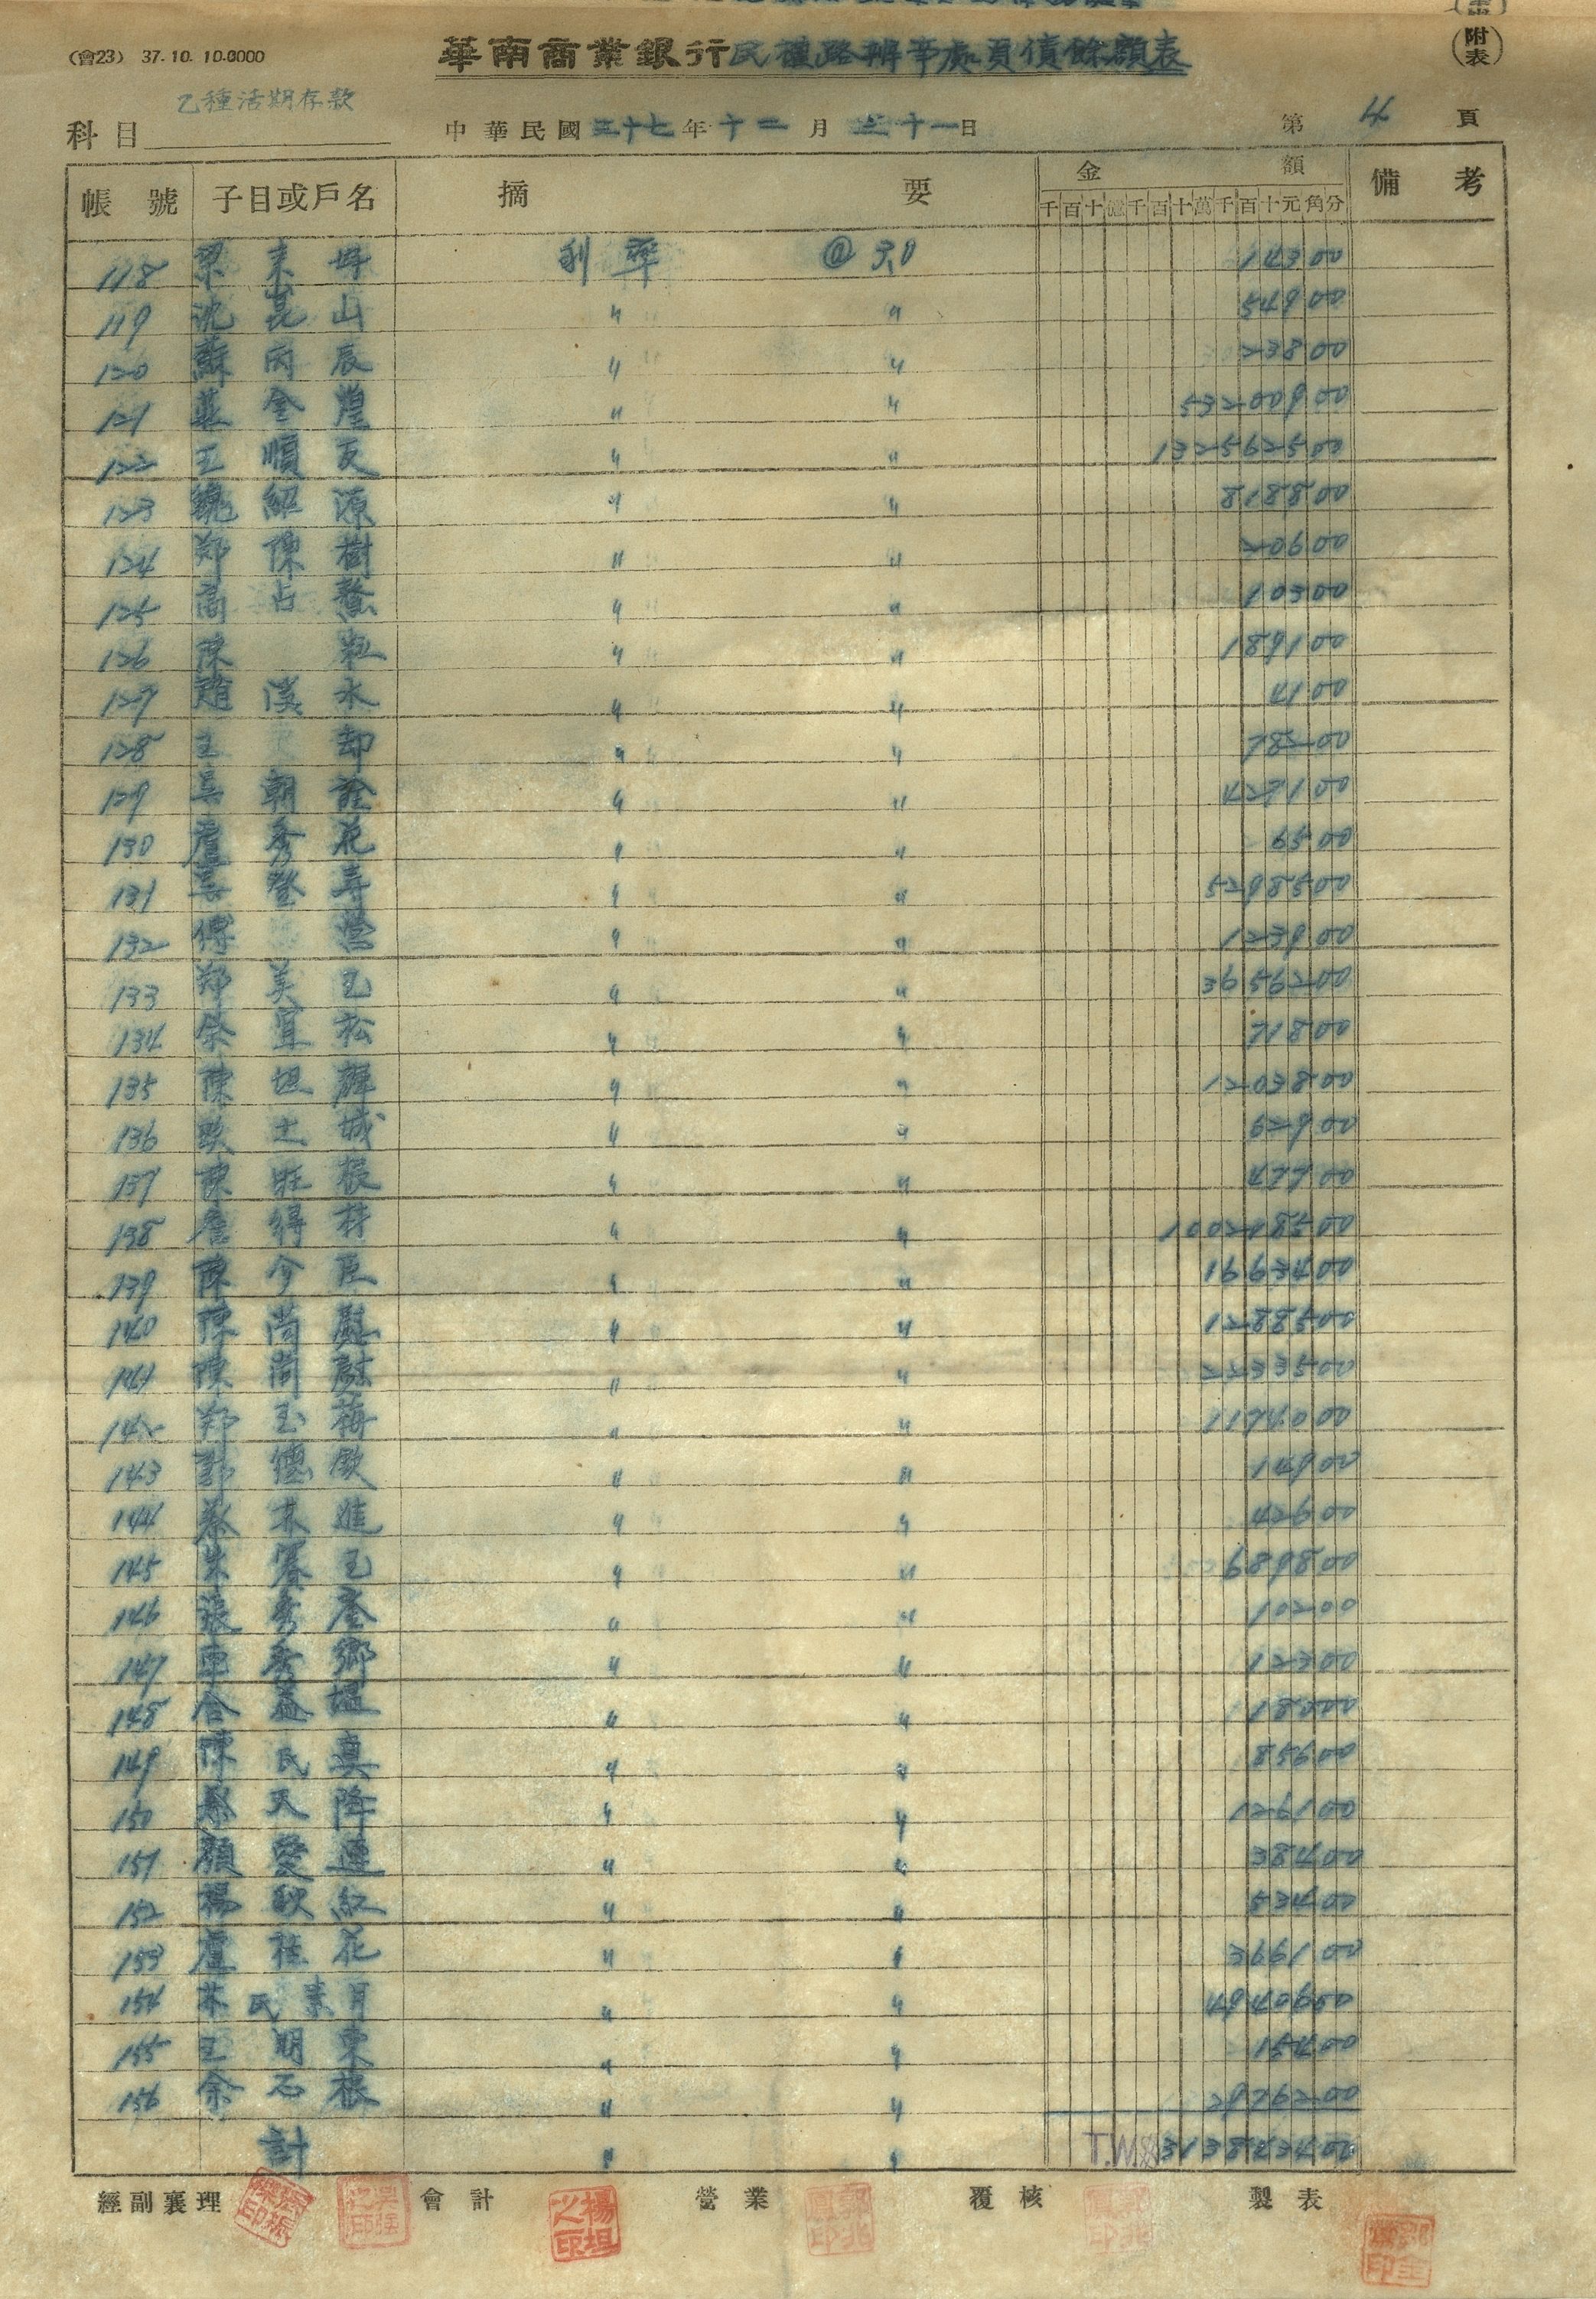 （會23） 37.10.10.6000
華南商業銀行民權路辦事處負債餘額表
（附表）
乙種活期存款
科目
中華民國三十七年十二月三十一日
第 4 頁
帳號 子目或戶名 摘要 金額 備考
千百十億千百十萬千百十元角分
118 梁 坤 利率 @3.0 143 00
119 沈崑山 〃 〃 549 00
120 蘇丙辰 〃 〃 238 00
121 金煌 〃 〃 532009 00
122 王順友 〃 〃 1325625 00
123 魏紹源 〃 〃 8188 00
124 郑陳樹 〃 〃 206 00
125 高占鰲 〃 〃 103 00
126 陳 〃 〃 1891 00
127 趙漢水 〃 〃 41 00
128 王 却 〃 〃 782 00
129 吴朝詮 〃 〃 4271 00
130 盧秀花 〃 〃 65 00
131 吴登寿 〃 〃 52985 00
132 傅 营 〃 〃 1239 00
133 郑美玉 〃 〃 36562 00
134 余宜松 〃 〃 718 00
135 陳坦 〃 〃 12038 00
136 欧土城 〃 〃 629 00
137 陳旺根 〃 〃 477 00
138 詹得材 〃 〃 1002185 00
139 陳今臣 〃 〃 16634 00
140 陳尚慰 〃 〃 12885 00
141 陳尚 〃 〃 22335 00
142 郑玉梅 〃 〃 11740 00
143 郭德欽 〃 〃 149 00
144 蔡木進 〃 〃 426 00
145 朱寳玉 〃 〃 6898 00
146 張秀奎 〃 〃 102 00
147 車秀鄉 〃 〃 123 00
148 合益 〃 〃 180 00
149 陳氏真 〃 〃 856 00
150 天降 〃 〃 1261 00
151 顏愛蓮 〃 〃 384 00
152 楊秋紅 〃 〃 534 00
153 盧桂花 〃 〃 3661 00
154 林氏素月 〃 〃 49406 00
155 王明東 〃 〃 154 00
156 余石根 〃 〃 29762 00
計 〃 〃 T.W.$3138434 00
經副襄理 會計 楊坦之印 營業 覆核 製表